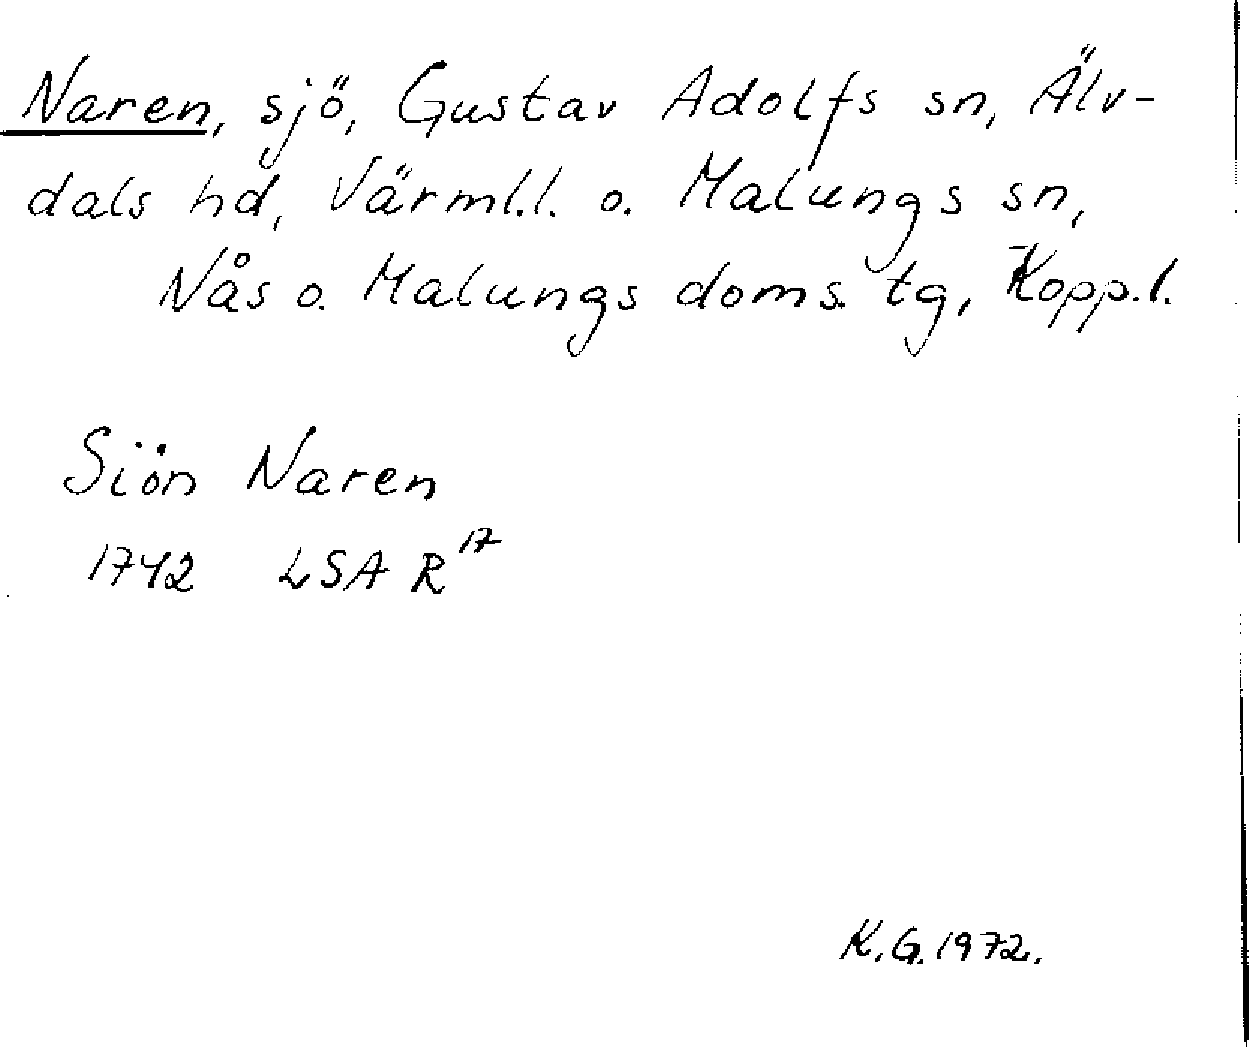 Naren, sjö, Gustav Adolfs sn, Älv-
dals hd, Värml.l. o. Malungs sn,
Nås o. Malungs doms. tg, Kopp.l.
Siön Naren
1742 LSA R 17
K.G. 1972.